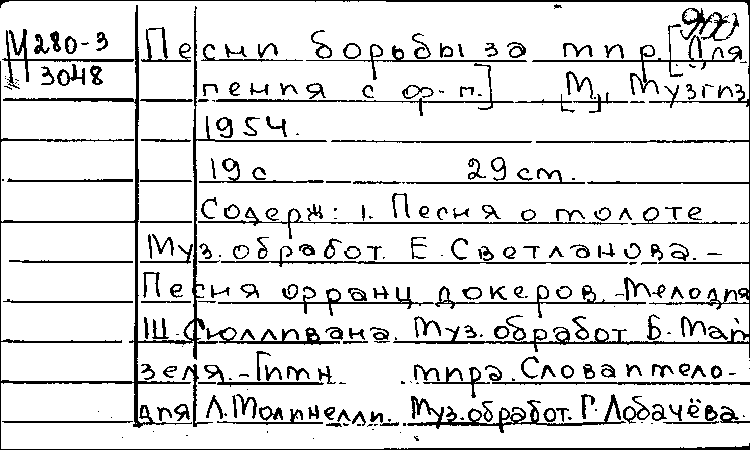 900
М 280-3
3048
Песни борьбы за мир. [Для
пения с ф.-п.] [М.], Музгиз,
1954.
19 с 29 см.
Содерж: 1. Песня о молоте
Муз. обработ. Е. Светланова. –
Песня франц. докеров. – Мелодия
Ш. Сюлливана. Муз. обработ. Б. Май-
зеля. – Гимн мира. Слова и мело-
дия Л. Молинелли. Муз. обработ. Г. Лобачёва.